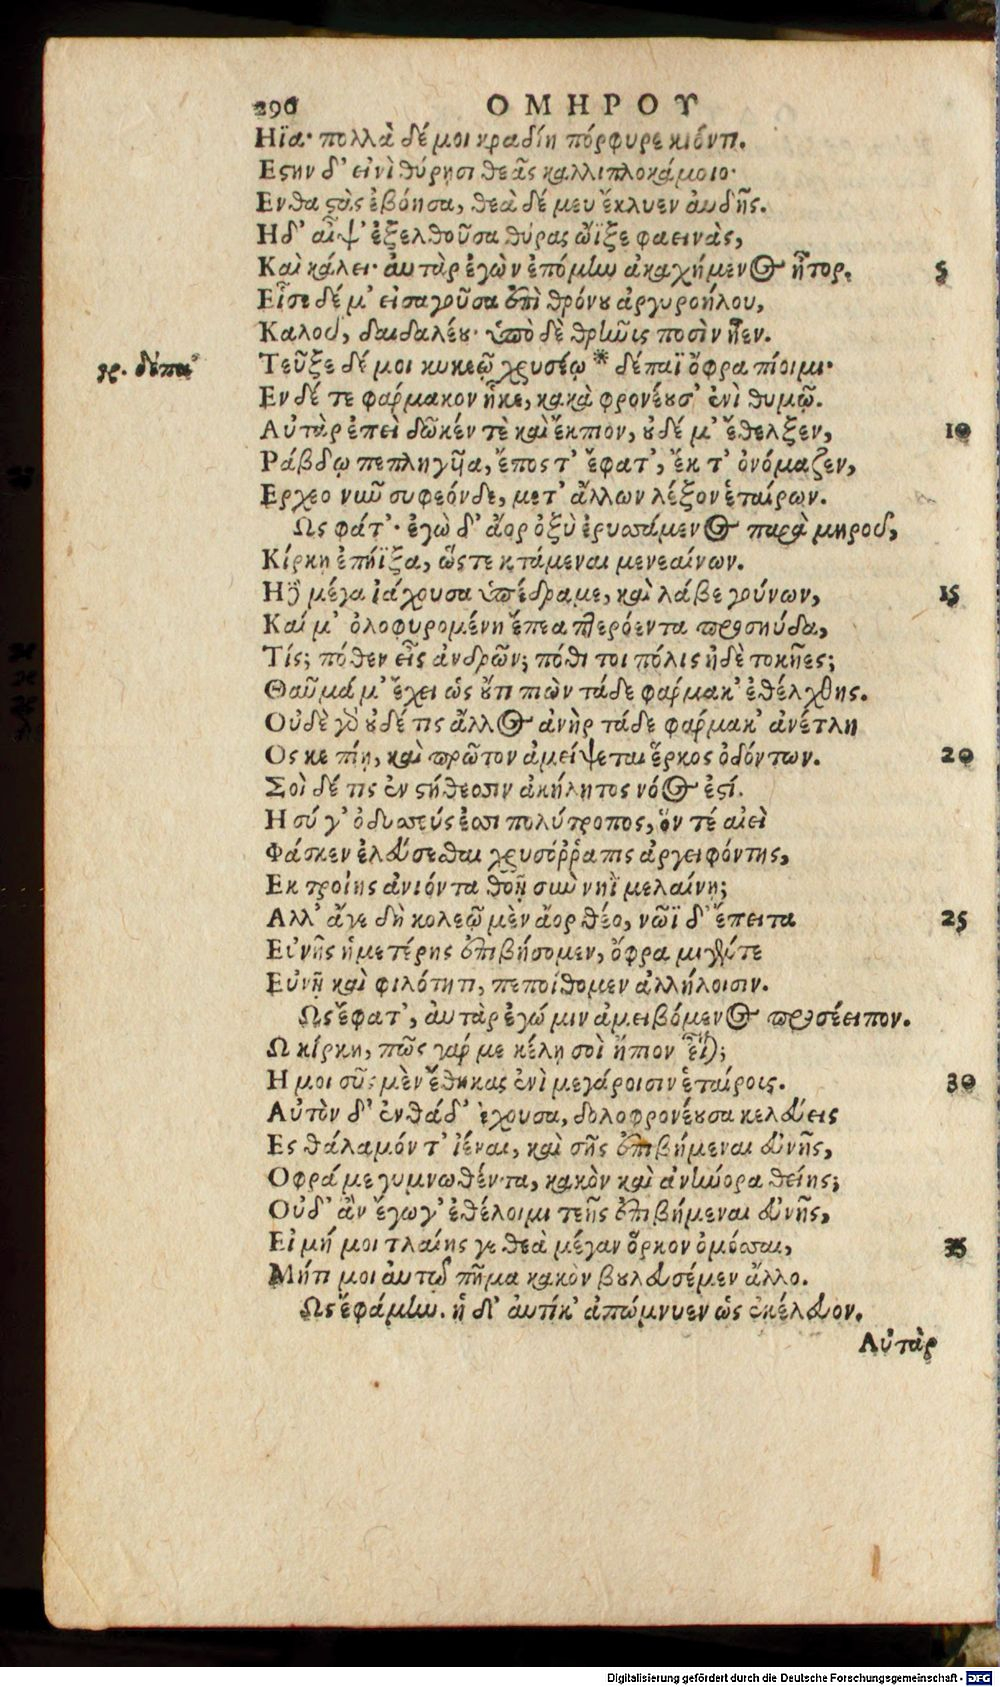 290 ΟΜΗΡΟΥ
Ηϊα· πολλὰ δέ μοι κραδίη πόρφυρε κιόντι.
Εςην δ' εἰνὶ θύρησι θεᾶς καλλιπλοκάμοιο·
Ενθα ςὰς ἐβόησα, θεὰ δέ μευ ἔκλυεν ἀυδῆς.
Ηδ' αἶψ' ἐξελθοῦσα θύρας ὤϊξε φαεινὰς,
Καὶ κάλει· ἀυτὰρ ἐγὼν ἐπόμην ἀκαχήμενος ἦτορ. 5
Εἷσε δέ μ' εἰσαγοῦσα ἐπὶ θρόνου ἀργυροήλου,
Καλοῦ, δαιδαλέου· ὑπὸ δὲ θρῆνυς ποσὶν ἦεν.
γρ. δέπα Τεῦξε δέ μοι κυκεῷ χρυσέῳ * δέπαϊ ὄφρα πίοιμι·
Εν δέ τε φάρμακον ἧκε, κακὰ φρονέουσ' ἐνὶ θυμῷ.
Αὐτὰρ ἐπεὶ δῶκέν τὲ καὶ ἔκπιον, οὐδέ μ' ἔθελξεν, 10
Ράβδῳ πεπληγῦα, ἔπος τ' ἔφατ', ἔκ τ' ὀνόμαζεν,
Ερχεο νῦν συφεόνδε, μετ' ἄλλων λέξον ἑταίρων.
Ως φάτ'· ἐγὼ δ' ἄορ ὀξὺ ἐρυσσάμενος παρὰ μηροῦ,
Κίρκῃ ἐπήϊξα, ὥςτε κτάμεναι μενεαίνων.
Η δὲ μέγα ἰάχουσα ὑπέδραμε, καὶ λάβε γούνων, 15
Καί μ' ὀλοφυρομένη ἔπεα πτερόεντα προσηύδα,
Τίς; πόθεν εἶς ἀνδρῶν; πόθι τοι πόλις ἠδὲ τοκῆες;
Θαῦμά μ' ἔχει ὡς οὔτι πιὼν τάδε φάρμακ' ἐθέλχθης.
Οὐδὲ γὰρ οὐδέ τις ἄλλος ἀνὴρ τάδε φάρμακ' ἀνέτλη
Ος κε πίῃ, καὶ πρῶτον ἀμείψεται ἕρκος ὀδόντων. 20
Σοὶ δέ τις ἐν ςήθεσσιν ἀκήλητος νόος ἐςί.
Η σύ γ' ὀδυσσεύς ἐσσι πολύτροπος, ὅν τέ αἰεὶ
Φάσκεν ἐλεύσεσθαι χρυσόῤῥαπις ἀργειφόντης,
Εκ τροίης ἀνιόντα θοῇ σὺν νηῒ μελαίνῃ;
Αλλ' ἄγε δὴ κολεῷ μὲν ἄορ θέο, νῶϊ δ' ἔπειτα 25
Εὐνῆς ἡμετέρης ἐπιβήσομεν, ὄφρα μιγέντε
Εὐνῇ καὶ φιλότητι, πεποίθομεν ἀλλήλοισιν.
Ως ἔφατ', ἀυτὰρ ἐγώ μιν ἀμειβόμενος προσέειπον.
Ω κίρκη, πῶς γάρ με κέλῃ σοὶ ἤπιον εἶναι;
Η μοι σῦς μὲν ἔθηκας ἐνὶ μεγάροισιν ἑταίροις. 30
Αὐτὸν δ' ἐνθάδ' ἔχουσα, δολοφρονέουσα κελεύεις
Ες θάλαμόν τ' ἰέναι, καὶ σῆς ἐπιβήμεναι εὐνῆς,
Οφρά με γυμνωθέντα, κακὸν καὶ ἀνήνορα θείης;
Οὐδ' ἂν ἔγωγ' ἐθέλοιμι τεῆς ἐπιβήμεναι εὐνῆς,
Εἰ μή μοι τλαίης γε θεὰ μέγαν ὅρκον ὀμόσσαι, 35
Μήτι μοι ἀυτῷ πῆμα κακὸν βουλευσέμεν ἄλλο.
Ως ἐφάμην. ἡ δ' ἀυτίκ' ἀπώμνυεν ὡς ἐκέλευον.
Αὐτὰρ
Digitalisierung gefördert durch die Deutsche Forschungsgemeinschaft - DFG